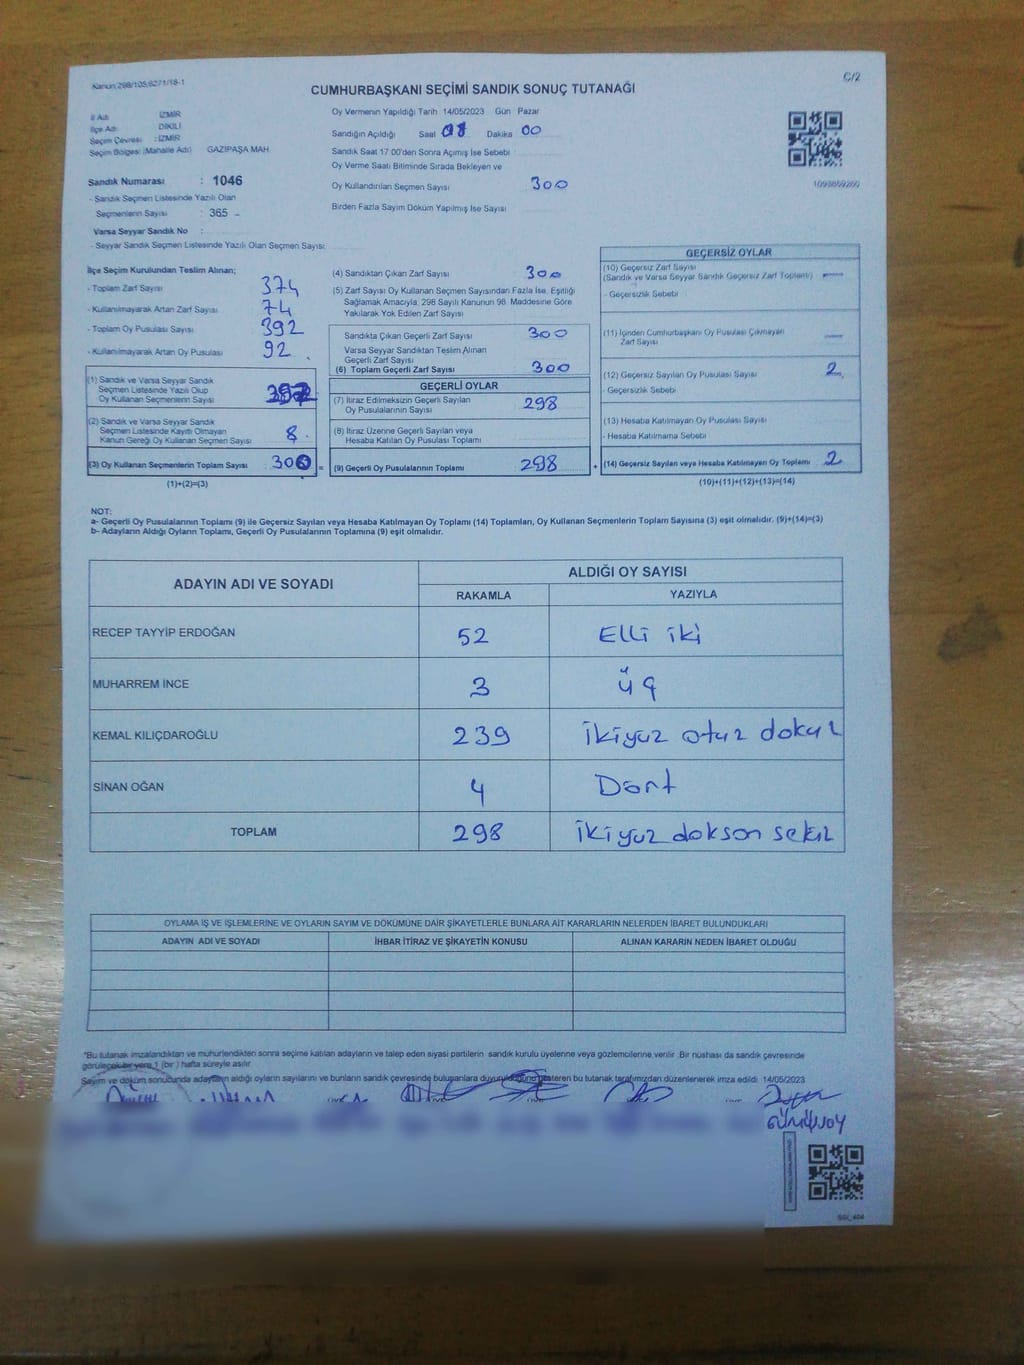 Kanun:298/105,6271/18-1
C/2
CUMHURBAŞKANI SEÇİMİ SANDIK SONUÇ TUTANAĞI
İl Adı : İZMİR
İlçe Adı : DİKİLİ
Seçim Çevresi : İZMİR
Seçim Bölgesi (Mahalle Adı) GAZİPAŞA MAH.
Sandık Numarası : 1046
- Sandık Seçmen Listesinde Yazılı Olan
Seçmenlerin Sayısı : 365
Varsa Seyyar Sandık No :
- Seyyar Sandık Seçmen Listesinde Yazılı Olan Seçmen Sayısı:
Oy Vermenin Yapıldığı Tarih 14/05/2023 Gün Pazar
Sandığın Açıldığı Saat 08 Dakika 00
Sandık Saat 17.00'den Sonra Açımış İse Sebebi :
Oy Verme Saati Bitiminde Sırada Bekleyen ve
Oy Kullandırılan Seçmen Sayısı 300
Birden Fazla Sayım Döküm Yapılmış İse Sayısı
İlçe Seçim Kurulundan Teslim Alınan;
- Toplam Zarf Sayısı 374
- Kullanılmayarak Artan Zarf Sayısı 74
- Toplam Oy Pusulası Sayısı 392
- Kullanılmayarak Artan Oy Pusulası 92
(1) Sandık ve Varsa Seyyar Sandık
Seçmen Listesinde Yazılı Olup
Oy Kullanan Seçmenlerin Sayısı
(2) Sandık ve Varsa Seyyar Sandık
Seçmen Listesinde Kayıtlı Olmayan
Kanun Gereği Oy Kullanan Seçmen Sayısı 8
(3) Oy Kullanan Seçmenlerin Toplam Sayısı 300 =
(1)+(2)=(3)
(4) Sandıktan Çıkan Zarf Sayısı 300
(5) Zarf Sayısı Oy Kullanan Seçmen Sayısından Fazla İse, Eşitliği
Sağlamak Amacıyla; 298 Sayılı Kanunun 98. Maddesine Göre
Yakılarak Yok Edilen Zarf Sayısı
Sandıkta Çıkan Geçerli Zarf Sayısı 300
Varsa Seyyar Sandıktan Teslim Alınan
Geçerli Zarf Sayısı
(6) Toplam Geçerli Zarf Sayısı 300
GEÇERLİ OYLAR
(7) İtiraz Edilmeksizin Geçerli Sayılan
Oy Pusulalarının Sayısı 298
(8) İtiraz Üzerine Geçerli Sayılan veya
Hesaba Katılan Oy Pusulası Toplamı
(9) Geçerli Oy Pusulalarının Toplamı 298 +
GEÇERSİZ OYLAR
(10) Geçersiz Zarf Sayısı
(Sandık ve Varsa Seyyar Sandık Geçersiz Zarf Toplamı) —
- Geçersizlik Sebebi
(11) İçinden Cumhurbaşkanı Oy Pusulası Çıkmayan
Zarf Sayısı —
(12) Geçersiz Sayılan Oy Pusulası Sayısı 2
- Geçersizlik Sebebi
(13) Hesaba Katılmayan Oy Pusulası Sayısı
- Hesaba Katılmama Sebebi
(14) Geçersiz Sayılan veya Hesaba Katılmayan Oy Toplamı 2
(10)+(11)+(12)+(13)=(14)
NOT:
a- Geçerli Oy Pusulalarının Toplamı (9) ile Geçersiz Sayılan veya Hesaba Katılmayan Oy Toplamı (14) Toplamları, Oy Kullanan Seçmenlerin Toplam Sayısına (3) eşit olmalıdır. (9)+(14)=(3)
b- Adayların Aldığı Oyların Toplamı, Geçerli Oy Pusulalarının Toplamına (9) eşit olmalıdır.
ADAYIN ADI VE SOYADI ALDIĞI OY SAYISI
RAKAMLA YAZIYLA
RECEP TAYYİP ERDOĞAN 52 Elli iki
MUHARREM İNCE 3 üç
KEMAL KILIÇDAROĞLU 239 ikiyuz otuz dokuz
SİNAN OĞAN 4 Dört
TOPLAM 298 ikiyuz dokson sekiz
OYLAMA İŞ VE İŞLEMLERİNE VE OYLARIN SAYIM VE DÖKÜMÜNE DAİR ŞİKAYETLERLE BUNLARA AİT KARARLARIN NELERDEN İBARET BULUNDUKLARI
ADAYIN ADI VE SOYADI İHBAR İTİRAZ VE ŞİKAYETİN KONUSU ALINAN KARARIN NEDEN İBARET OLDUĞU
*Bu tutanak imzalandıktan ve mühürlendikten sonra seçime katılan adayların ve talep eden siyasi partilerin sandık kurulu üyelerine veya gözlemcilerine verilir. Bir nüshası da sandık çevresinde
görülecek bir yere 1 (bir) hafta süreyle asılır.
Sayım ve döküm sonucunda adayların aldığı oyların sayılarını ve bunların sandık çevresinde bulunanlara duyurulduğunu gösteren bu tutanak tarafımızdan düzenlenerek imza edildi. 14/05/2023